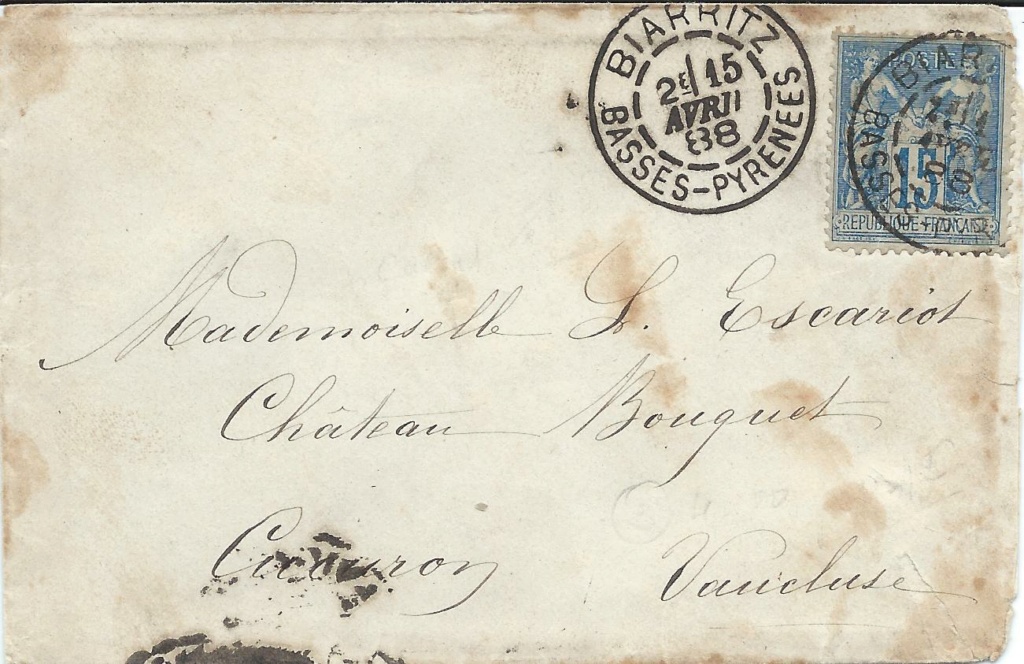 BIARRITZ
2E 15
AVRIL
88
BASSES-PYRENEES
POSTES
BIAR
BASSES
15
REPUBLIQUE FRANÇAISE
Mademoiselle L. Escariot
Château Bouquet
Cucuron Vaucluse